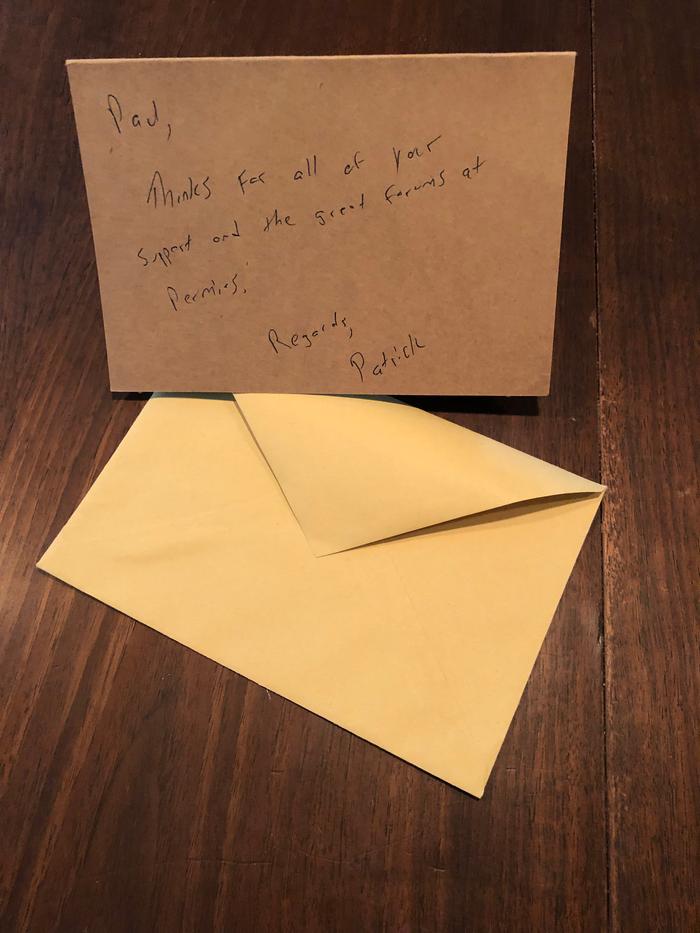 Paul,
Thanks for all of your
support and the great forums at
Permies.
Regards,
Patrick